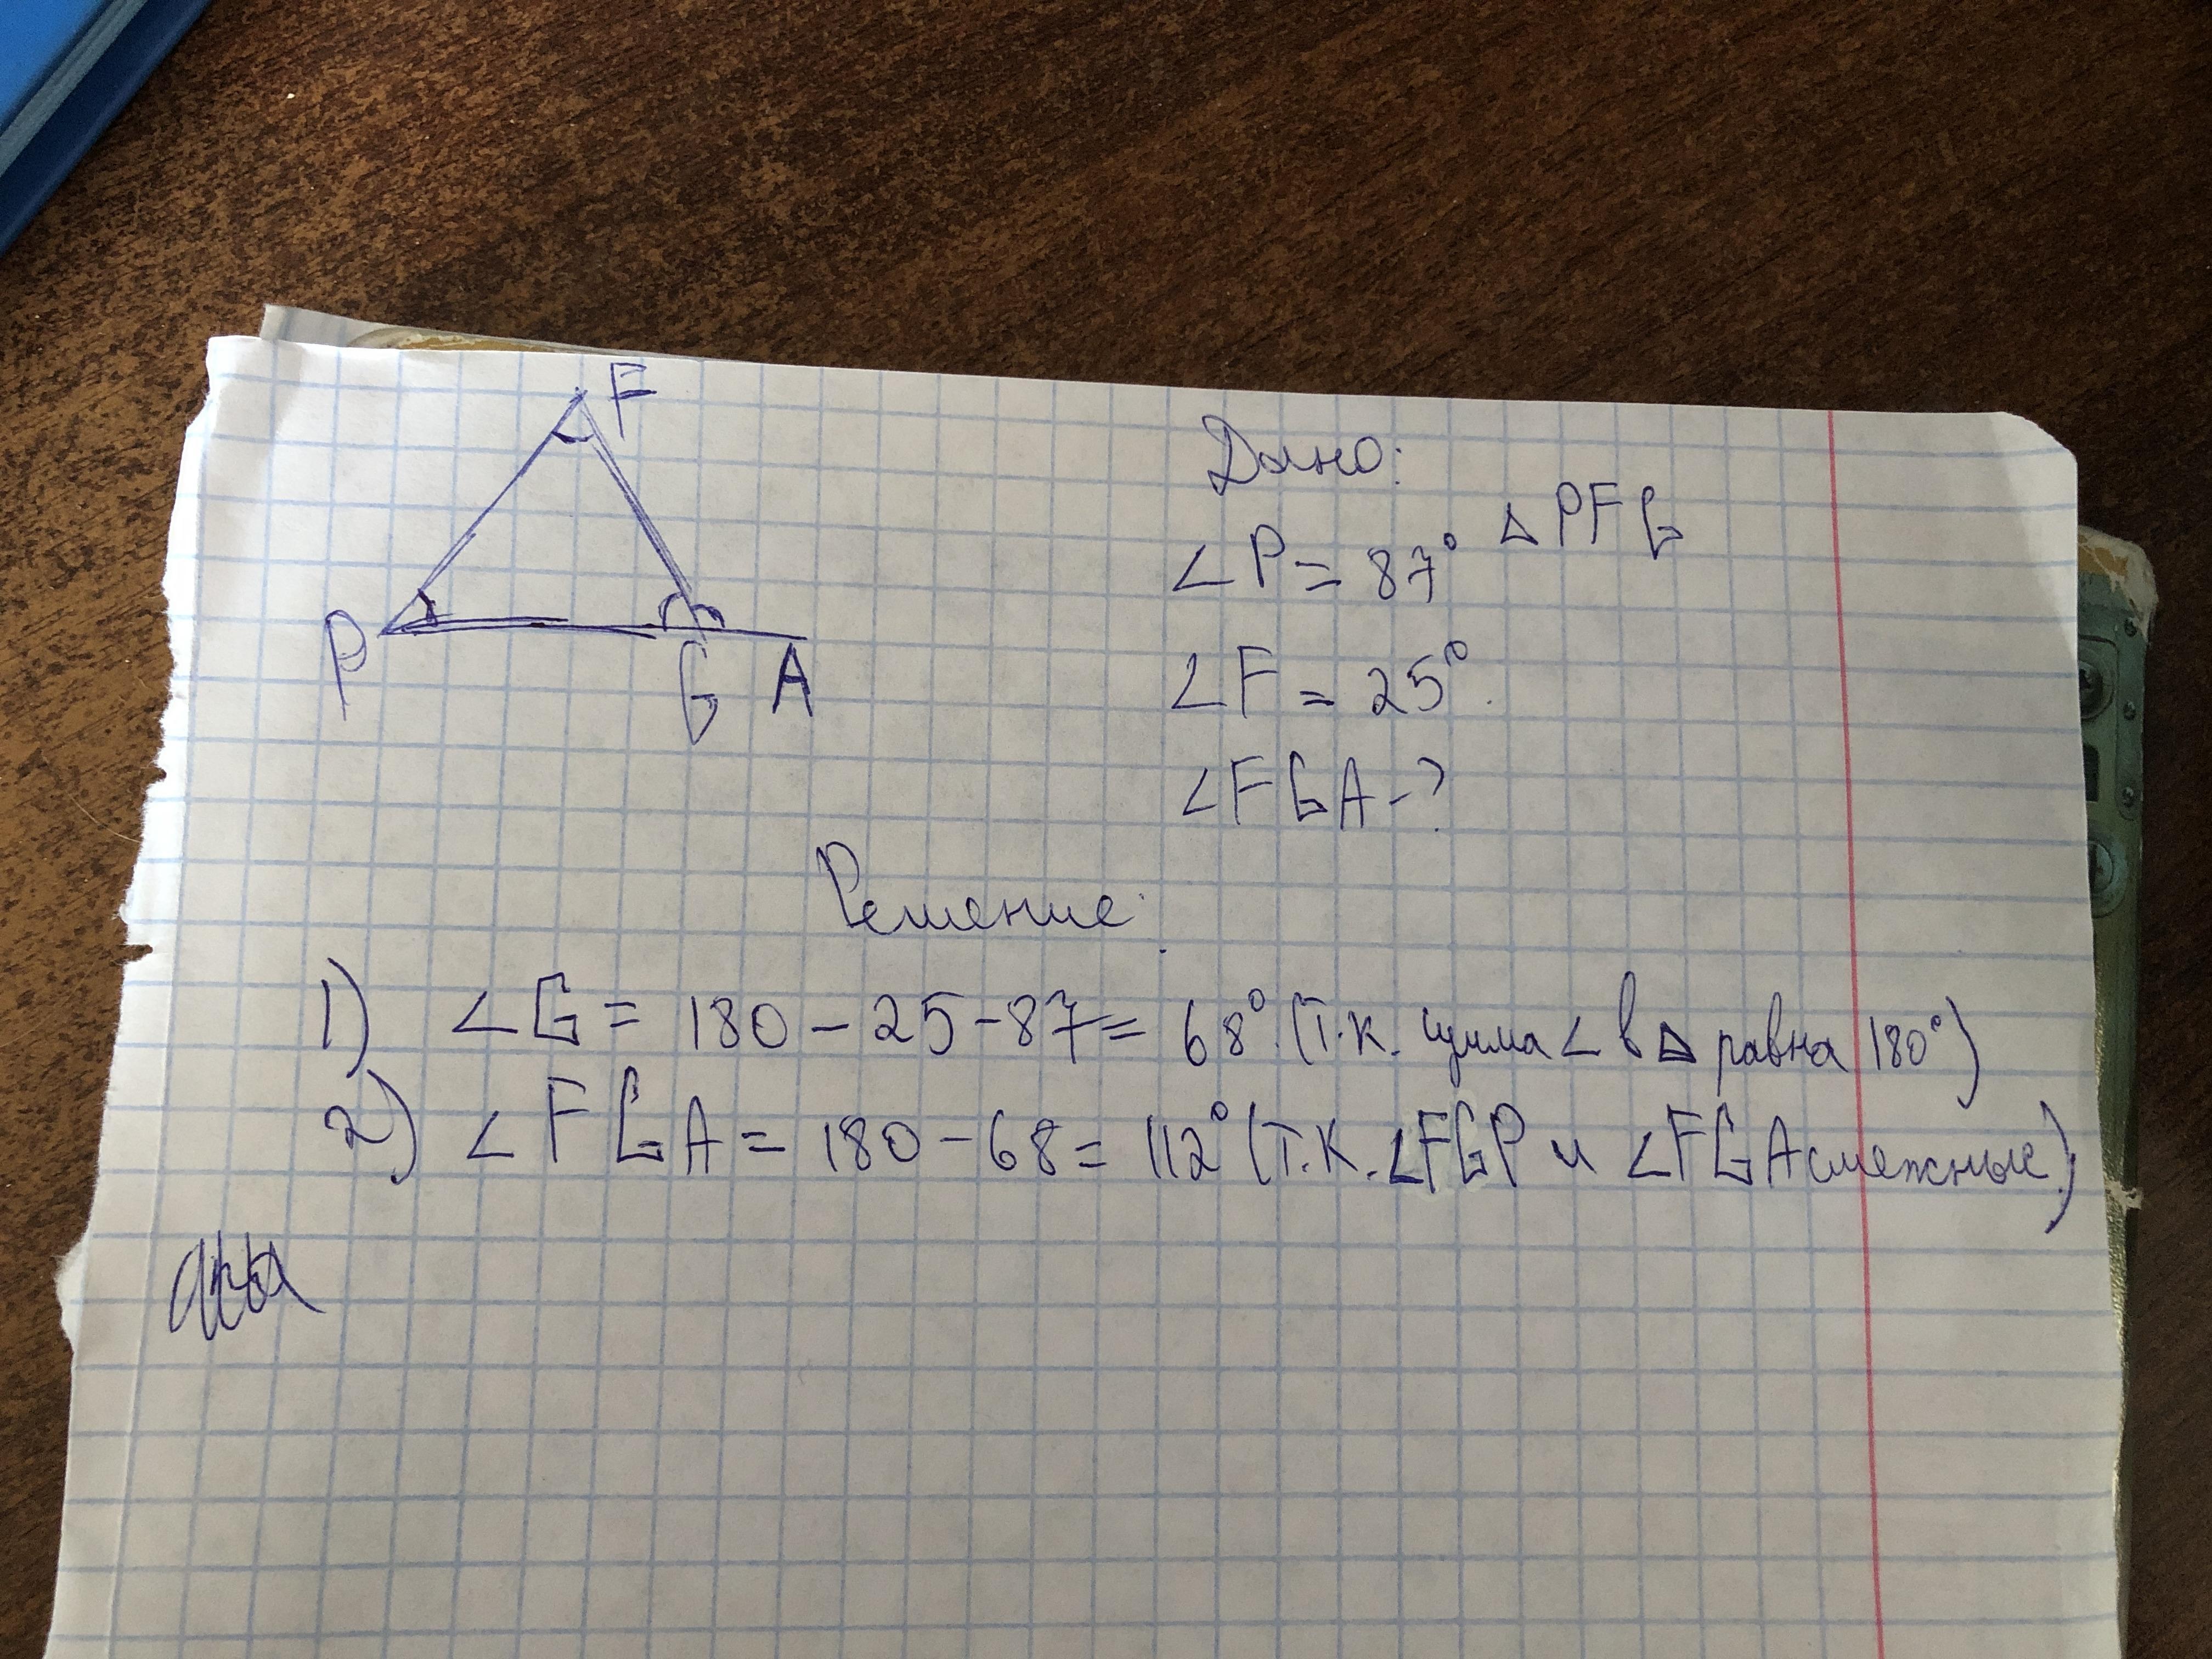 F
P
G A
Дано:
∠P = 87° △PFG
∠F = 25°.
∠FGA - ?
Решение:
1) ∠G = 180 - 25 - 87 = 68°. (т.к. сумма ∠ в △ равна 180°)
2) ∠FGA = 180 - 68 = 112° (т.к. ∠FGP и ∠FGA смежные)